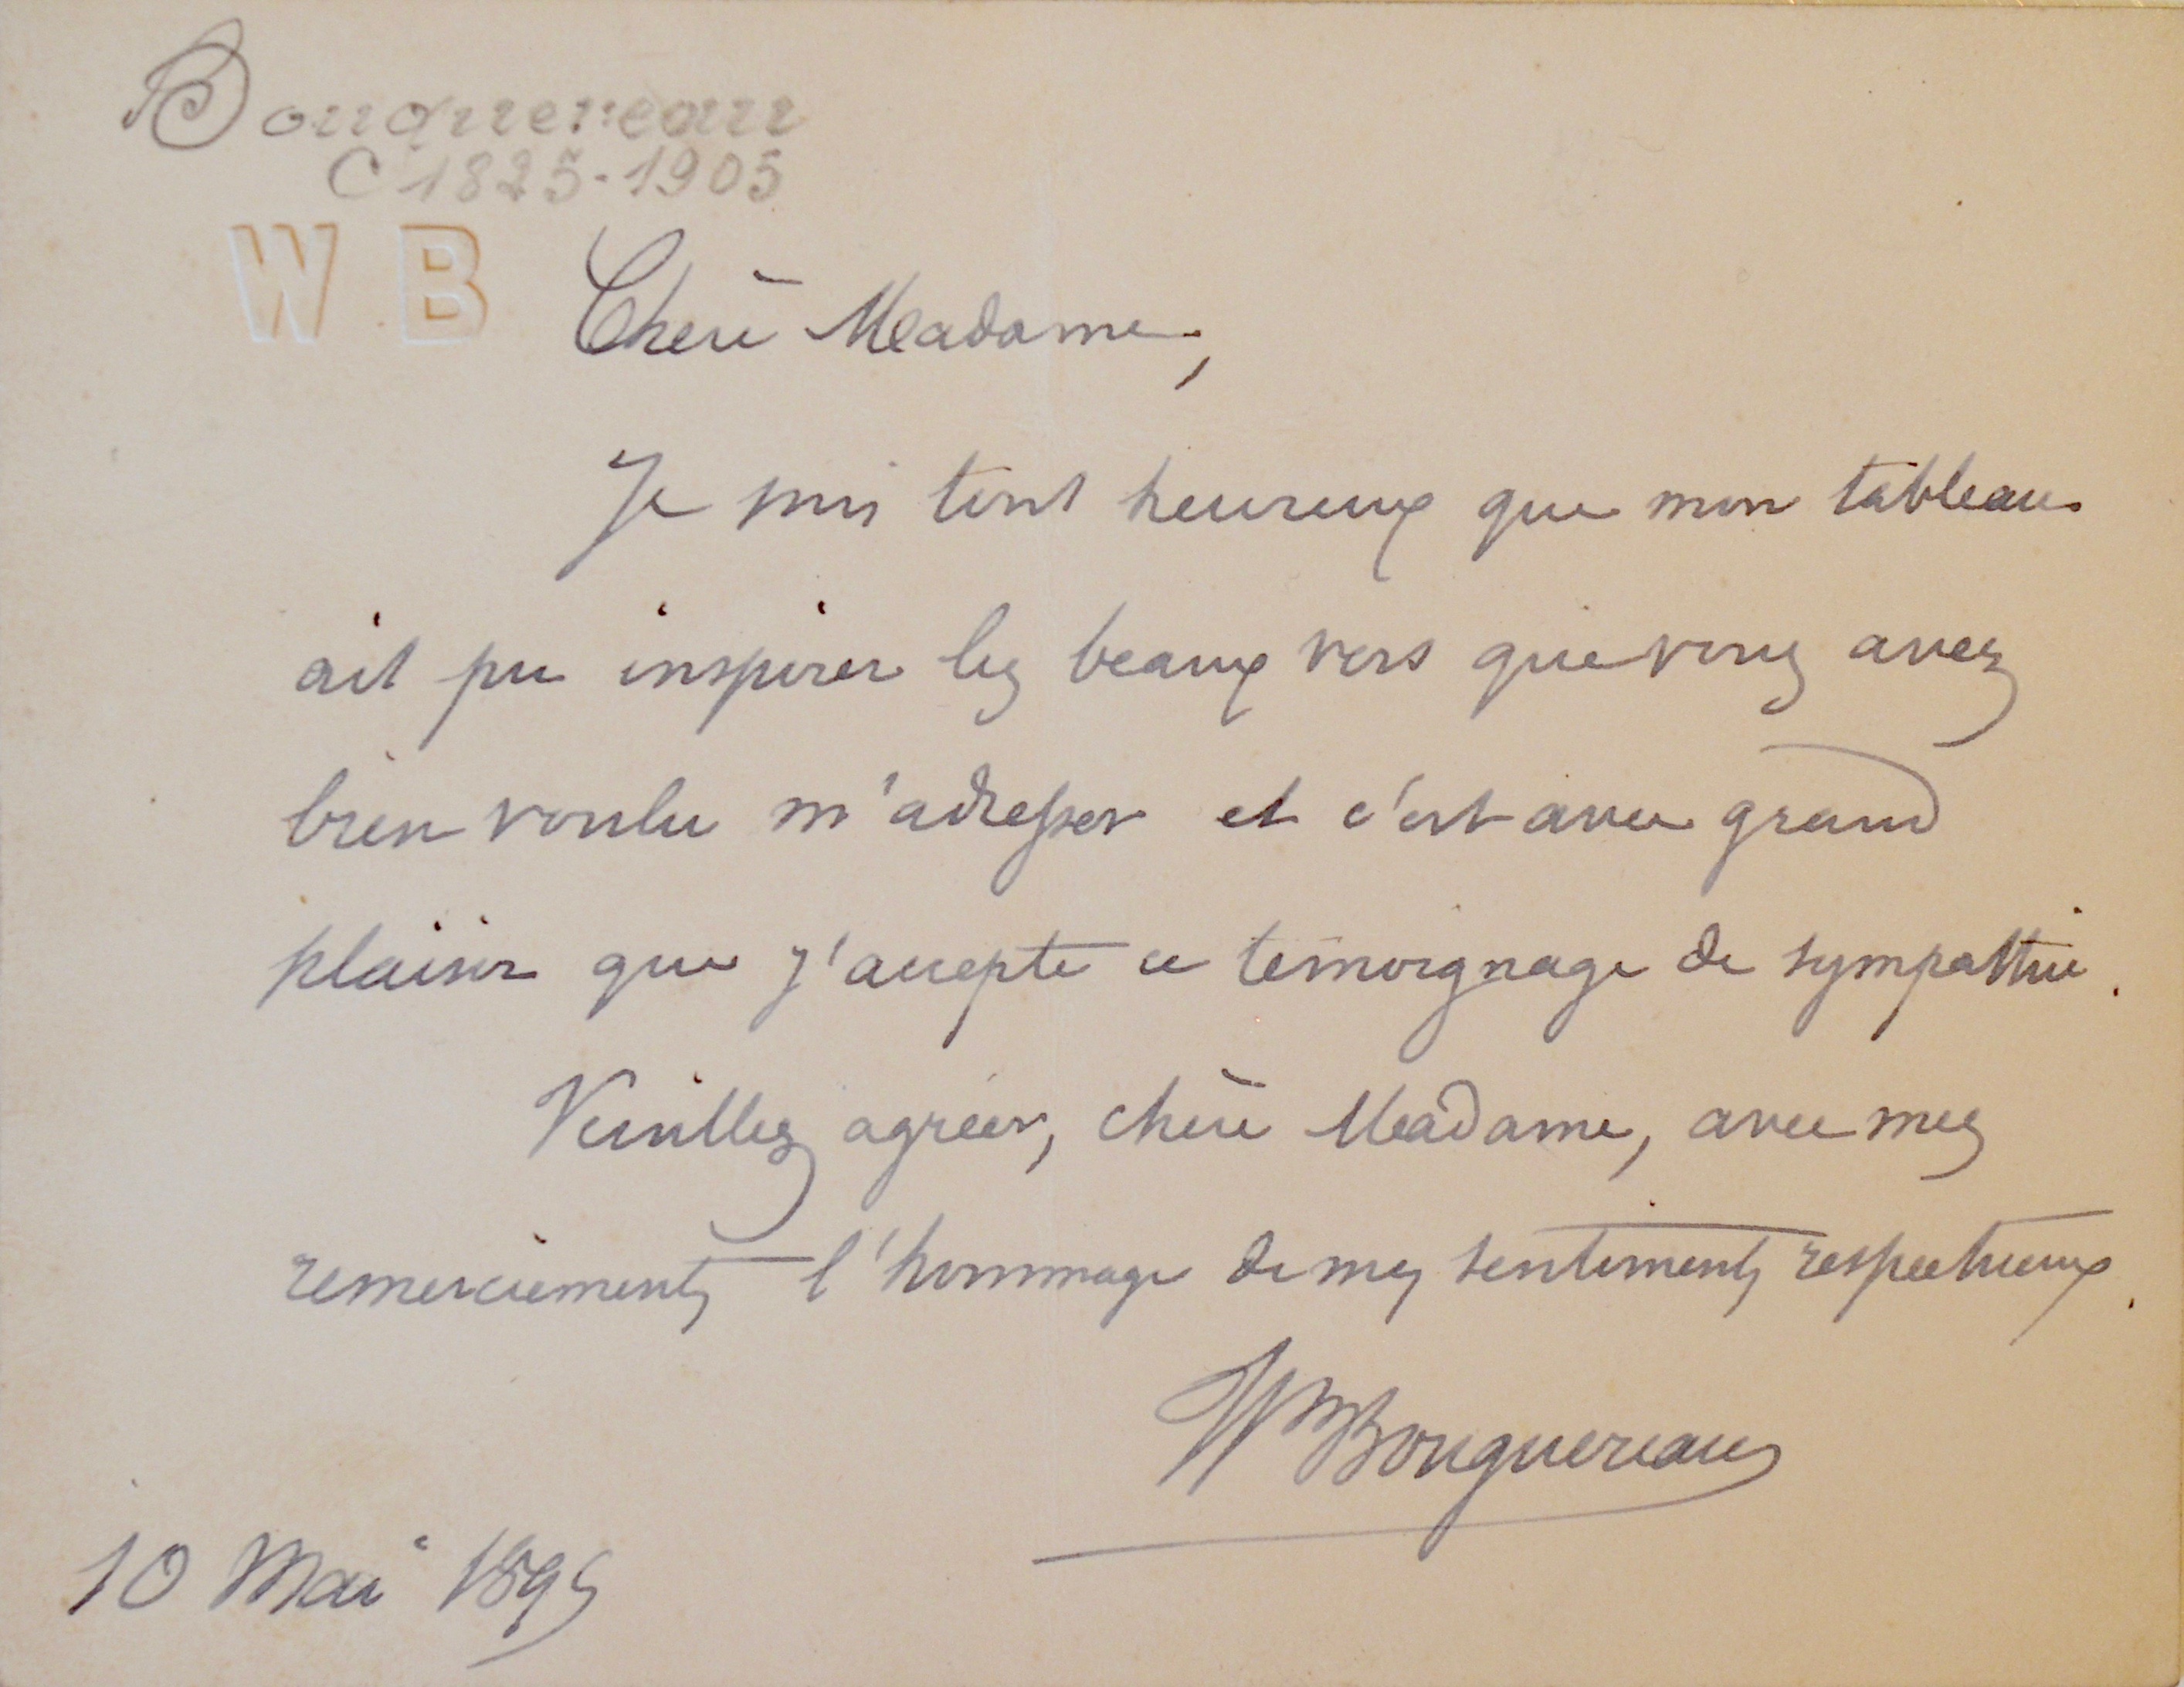 Bouguereau
C 1825-1905
W B
Chère Madame,
Je suis tout heureux que mon tableau
ait pu inspirer les beaux vers que vous avez
bien voulu m'adresser et c'est avec grand
plaisir que j'accepte ce témoignage de sympathie.
Veuillez agréer, chère Madame, avec mes
remerciements l'hommage de mes sentiments respectueux.
Wm Bouguereau
10 Mai 1895